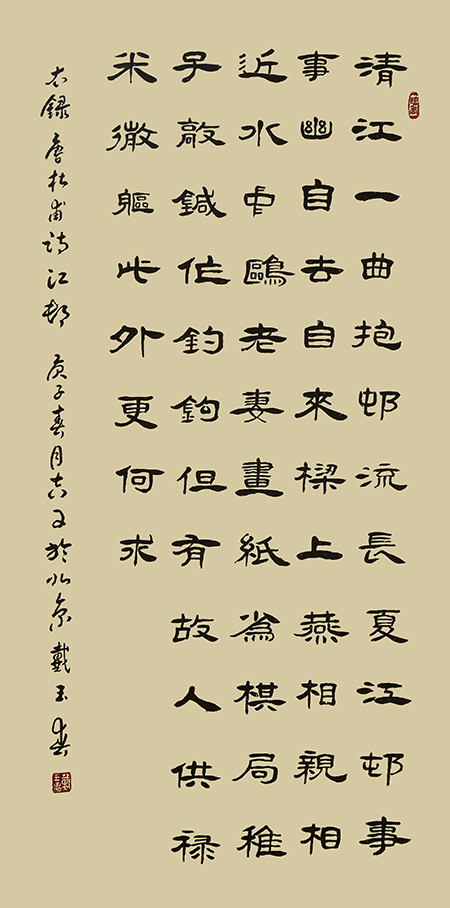 清江一曲抱邨流長夏江邨事
事幽自去自來樑上燕相親相
近水中鷗老妻畫紙為棋局稚
子敲鍼作釣鉤但有故人供禄
米微軀此外更何求
右録唐杜甫詩江邨 庚子春月吉日於北京戴玉